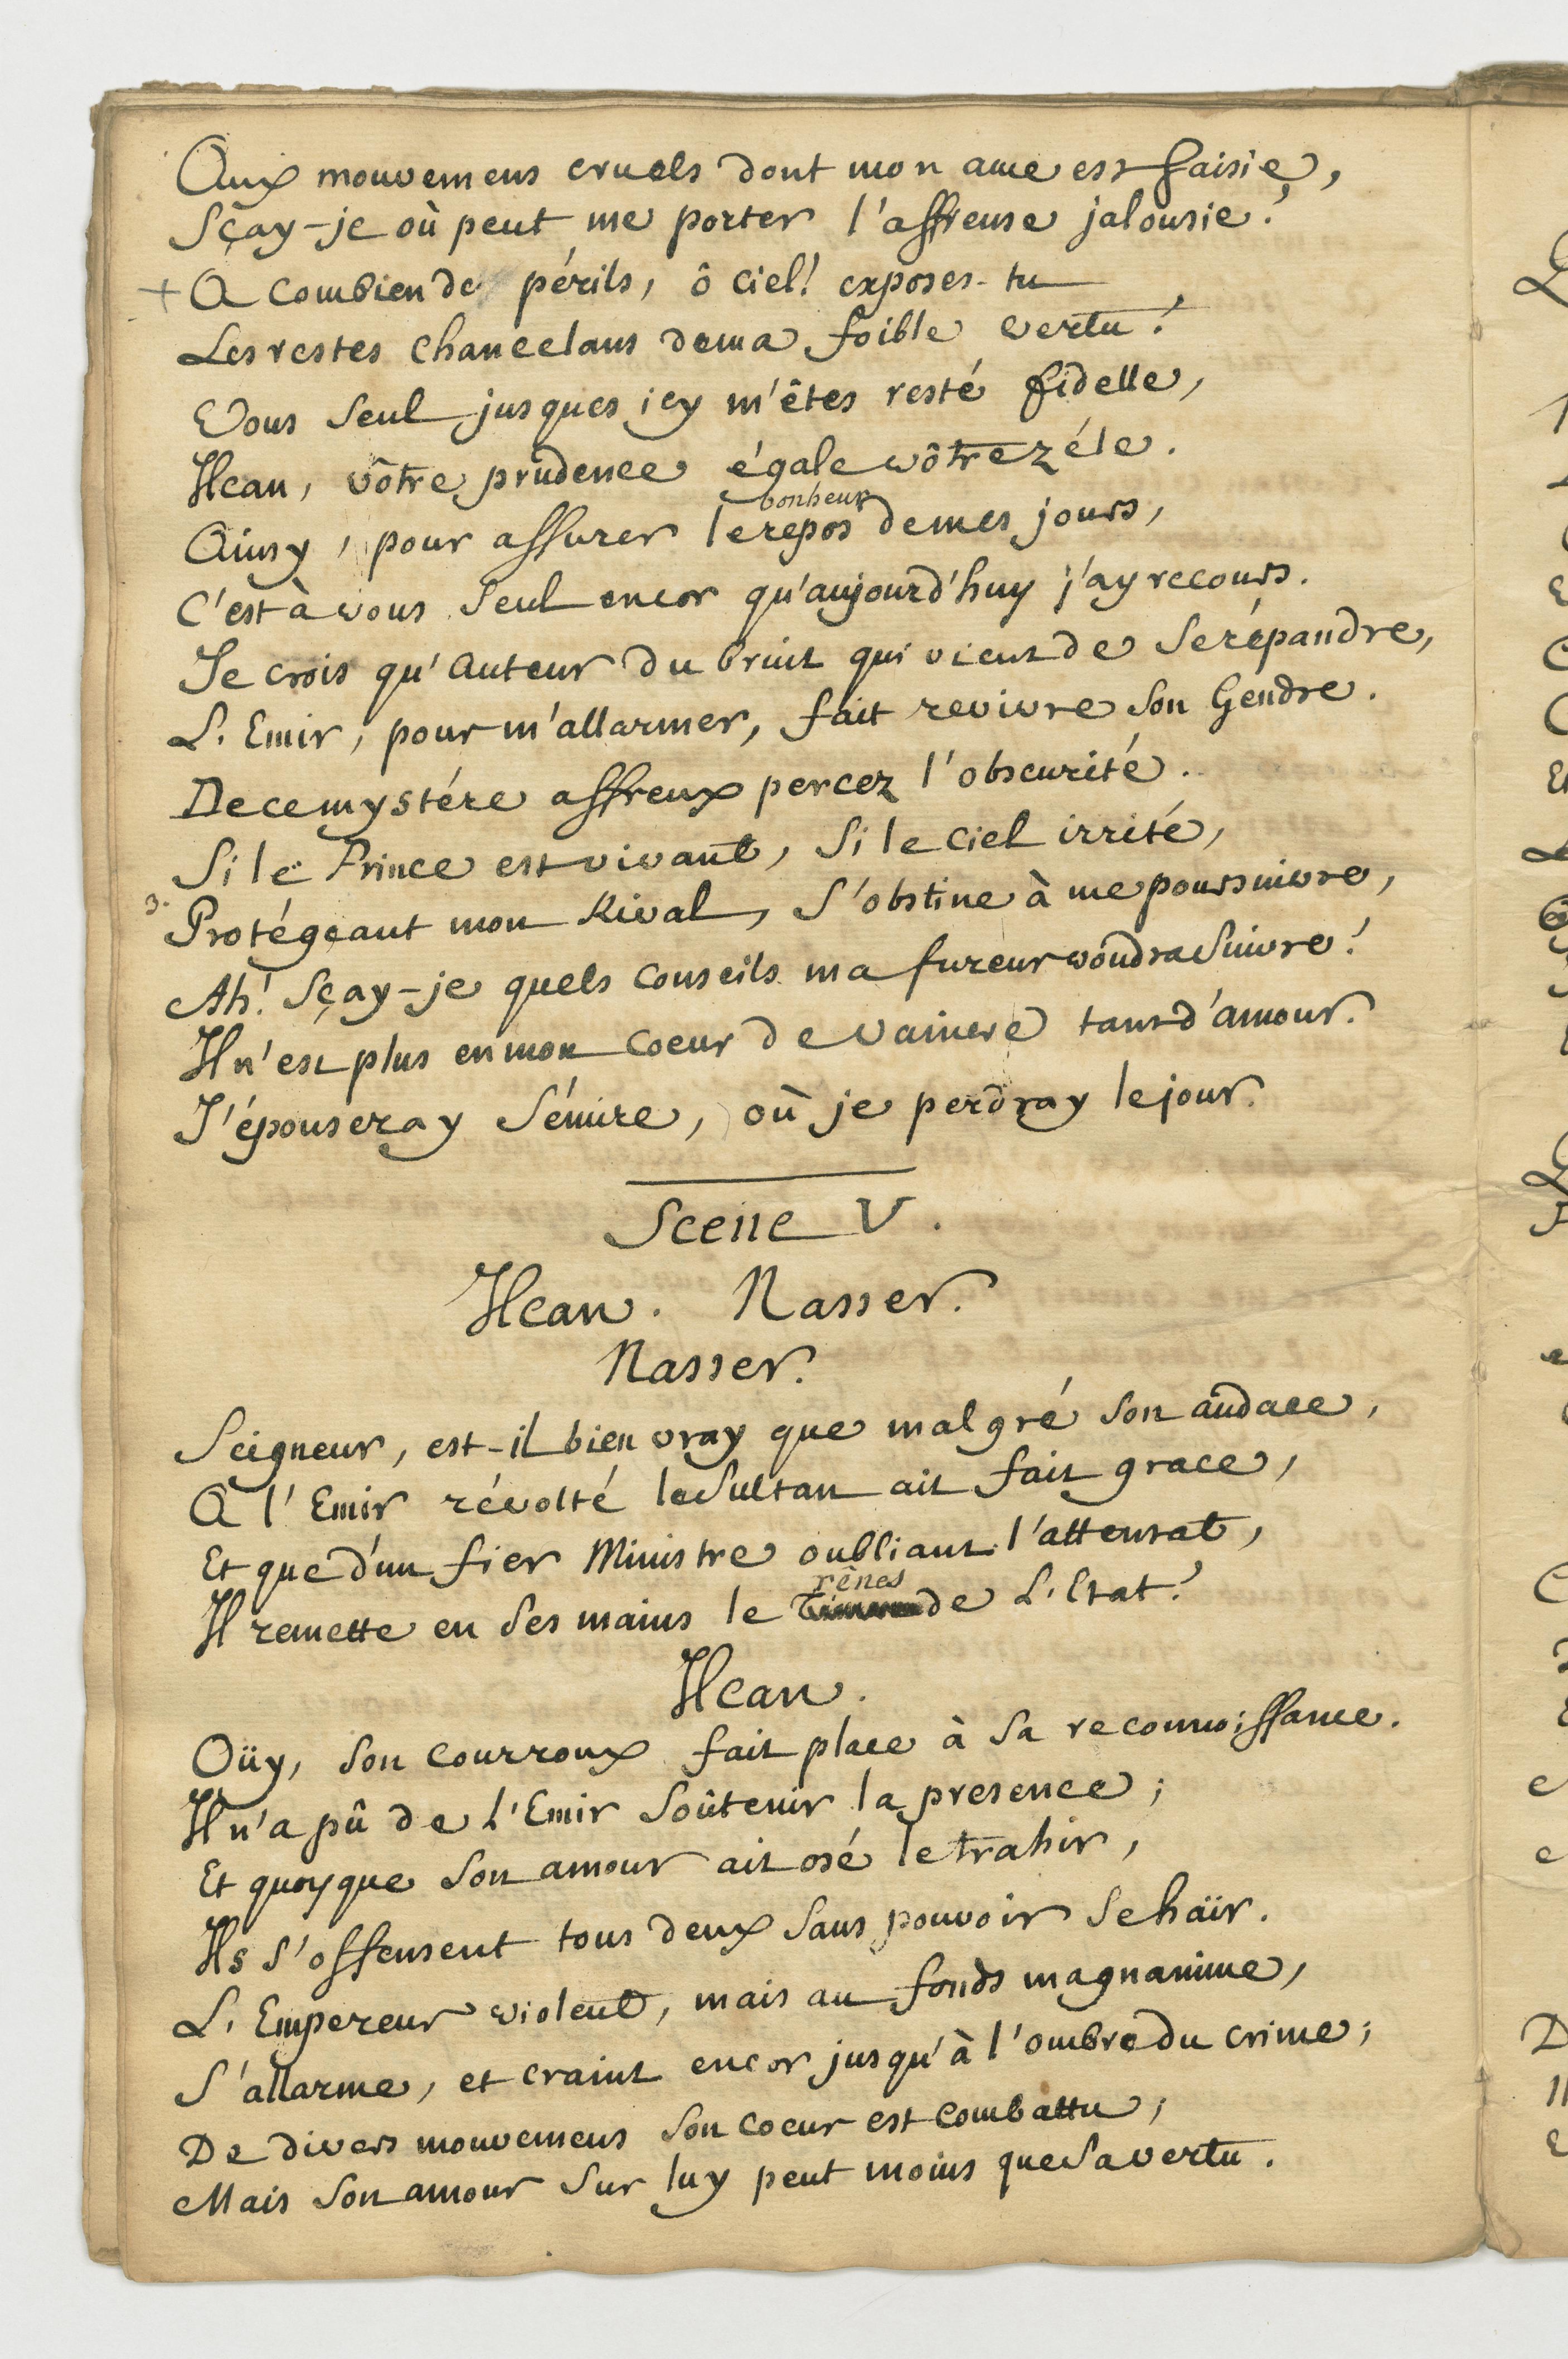 Aux mouvemens cruels dont mon ame est saisie,
Sçay-je où peut me porter l'affreuse jalousie?
+ A combien de périls, ô ciel! exposes-tu
Les restes chancelans de ma foible vertu?
Vous seul jusques icy m'êtes resté fidelle,
Hcan, vôtre prudence égale vôtre zéle.
bonheur
Ainsy, pour assurer le repos de mes jours,
C'est à vous seul encor qu'aujourd'huy j'ay recours.
Je crois qu'auteur du bruit qui vient de se répandre,
L'Emir, pour m'allarmer, fait revivre son Gendre.
De ce mystére affreux percez l'obscurité.
Si le Prince est vivant, si le ciel irrité,
3. Protégeant mon Rival, s'obstine à me poursuivre,
Ah! sçay-je quels conseils ma fureur voudra suivre!
Il n'est plus en mon coeur de vaincre tant d'amour.
J'épouseray Sémire, où je perdray le jour.
Scene V.
Hcan. Nasser.
Nasser.
Seigneur, est-il bien vray que malgré son audace,
A l'Emir révolté le Sultan ait fait grace,
Et que d'un fier Ministre oubliant l'attentat,
rênes
Il remette en ses mains le de L'Etat?
Hcan.
Oüy, son courroux fait place à sa reconnoissance.
Il n'a pû de L'Emir soûtenir la presence;
Et quoyque son amour ait osé le trahir,
Ils s'offensent tous deux sans pouvoir se haïr.
L'Empereur violent, mais au fonds magnanime,
S'allarme, et craint encor jusqu'à l'ombre du crime;
De divers mouvemens son coeur est combattu;
Mais son amour sur luy peut moins que sa vertu.